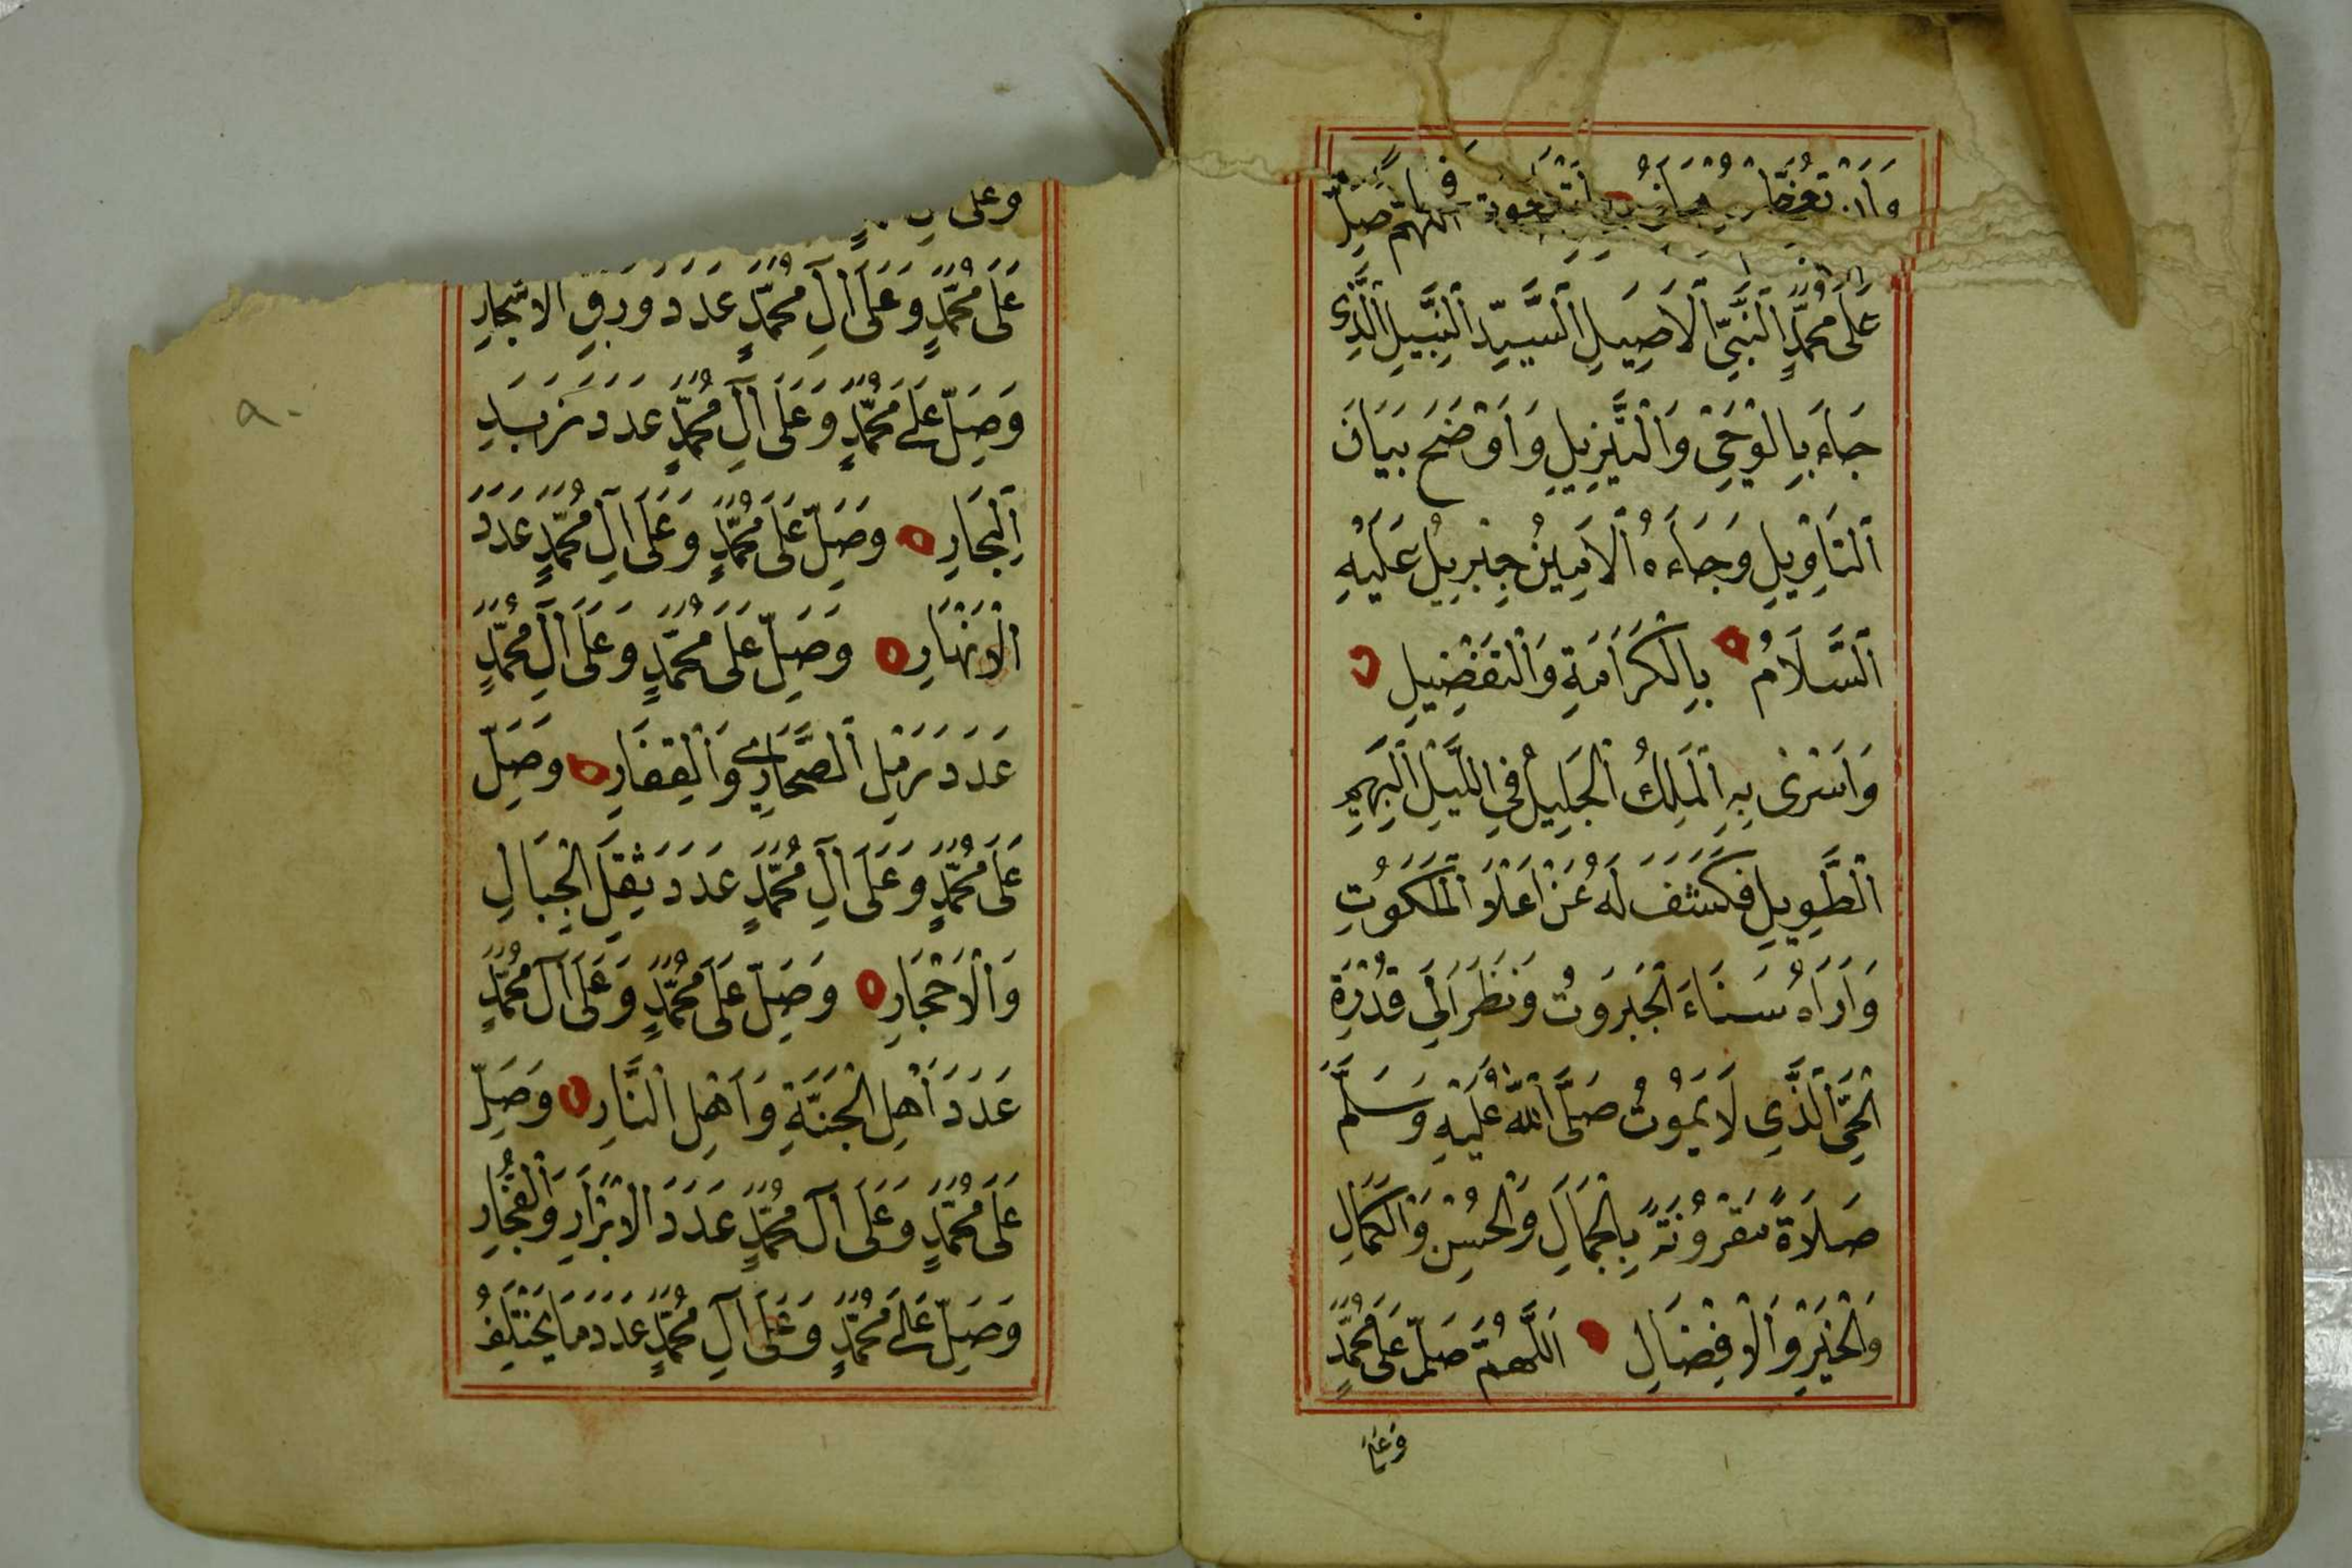 اَللّٰهُمَّ صَلِّ
عَلَى مُحَمَّدٍ اَلنَّبِيِّ اَلْاَصِيلِ اَلسَّيِّدِ اَلنَّبِيلِ اَلَّذِي
جَاءَ بِالْوَحْيِ وَاَلتَّنْزِيلِ وَاَوْضَحَ بَيَانَ
اَلتَّاْوِيلِ وَجَاءَهُ اَلْاَمِينُ جِبْرِيلُ عَلَيْهِ
اَلسَّلَامُ بِالْكَرَامَةِ وَاَلتَّفْضِيلِ
وَاَسْرٰى بِهِ اَلْمَلِكُ اَلْجَلِيلُ فِي اللَّيْلِ اَلْبَهِيمِ
اَلطَّوِيلِ فَكَشَفَ لَهُ عَنْ اَعْلَا اَلْمَلَكُوتِ
وَاَرَاهُ سَنَاءَ اَلْجَبَرُوتُ وَنَظَرَ اَلَى قُدْرَةِ
اَلْحَيِّ اَلَّذِي لَا يَمُوتُ صَلَّى اَللّٰهُ عَلَيْهِ وَسَلَّمَ
صَلَاةً مَقْرُونَةً بِالْجَمَالِ وَالْحُسْنِ وَالْكَمَالِ
وَالْخَيْرِ وَاَلْاِفْضَالِ اَللّٰهُمَّ صَلِّ عَلَى مُحَمَّدٍ
وَعَلَى
وعلى
عَلَى مُحَمَّدٍ وَعَلَى اٰلِ مُحَمَّدٍ عَدَدَ وَرَقِ الْاَشْجَارِ
وَصَلِّ عَلَى مُحَمَّدٍ وَعَلَى اٰلِ مُحَمَّدٍ عَدَدَ زَبَدِ
اَلْبِحَارِ وَصَلِّ عَلَى مُحَمَّدٍ وَعَلَى اٰلِ مُحَمَّدٍ عَدَدَ
اَلْاَنْهَارِ وَصَلِّ عَلَى مُحَمَّدٍ وَعَلَى اٰلِ مُحَمَّدٍ
عَدَدَ رَمْلِ اَلصَّحَارِي وَاَلْقِفَارِ وَصَلِّ
عَلَى مُحَمَّدٍ وَعَلَى اٰلِ مُحَمَّدٍ عَدَدَ ثِقَلِ الْجِبَالِ
وَاَلْاَحْجَارِ وَصَلِّ عَلَى مُحَمَّدٍ وَعَلَى اٰلِ مُحَمَّدٍ
عَدَدَ اَهْلِ الْجَنَّةِ وَاَهْلِ اَلنَّارِ وَصَلِّ
عَلَى مُحَمَّدٍ وَعَلَى اٰلِ مُحَمَّدٍ عَدَدَ الْاَبْرَارِ وَاَلْفُجَّارِ
وَصَلِّ عَلَى مُحَمَّدٍ وَعَلَى اٰلِ مُحَمَّدٍ عَدَدَ مَا يَخْتَلِفُ